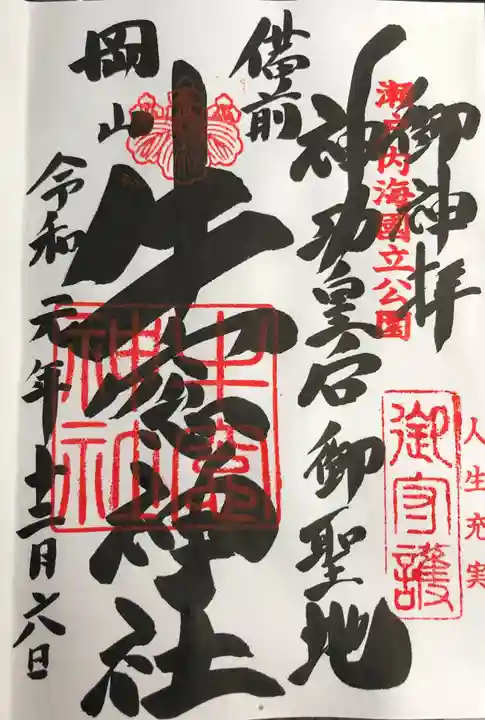 御神拝
瀬戸内海國立公園
人生充実
御守護
神功皇后御聖地
備前
牛窓神社
牛窓
神社
岡山
令和元年十二月廿八日